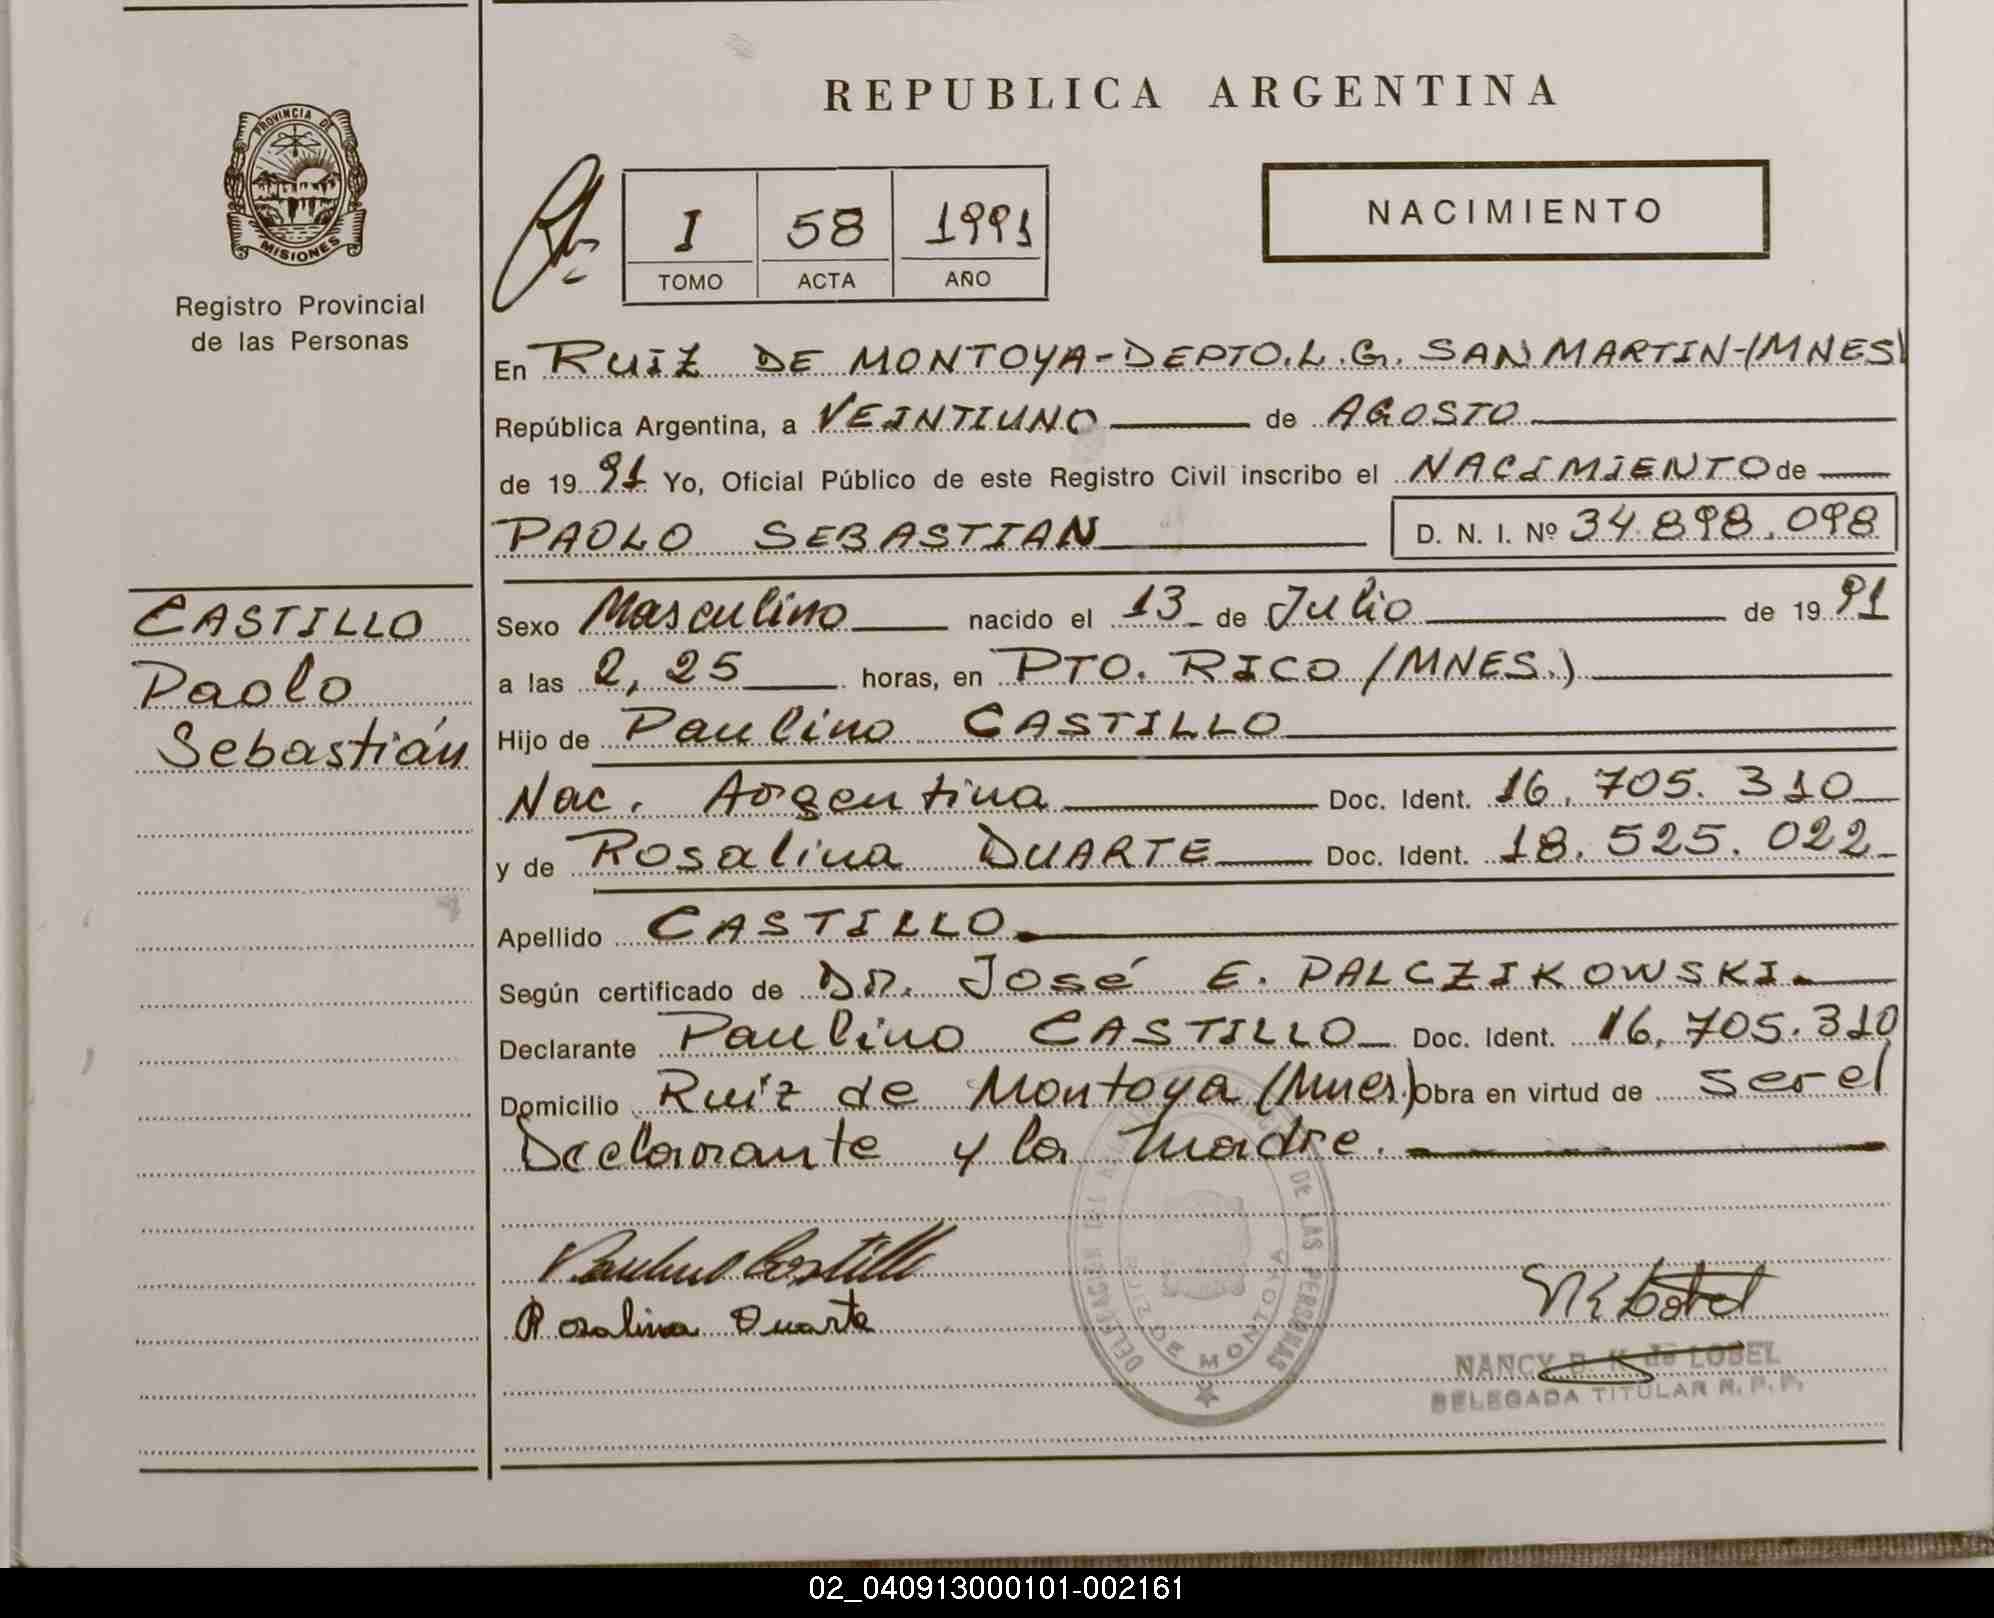 REPUBLICA ARGENTINA
PROVINCIA DE
MISIONES
Registro Provincial
de las Personas
I 58 1991
TOMO ACTA AÑO
NACIMIENTO
En RUIZ DE MONTOYA-DEPTO.L.G. SAN MARTIN-(MNES)
República Argentina, a VEINTIUNO de AGOSTO
de 1991 Yo, Oficial Público de este Registro Civil inscribo el NACIMIENTO de
PAOLO SEBASTIAN D. N. I. Nº 34.898.098
CASTILLO
Paolo
Sebastián
Sexo Masculino nacido el 13 de Julio de 1991
a las 2,25 horas, en PTO. RICO (MNES.)
Hijo de Paulino CASTILLO
Nac. Argentina Doc. Ident. 16.705.310
y de Rosalina DUARTE Doc. Ident. 18.525.022
Apellido CASTILLO
Según certificado de DR. José E. PALCZIKOWSKI
Declarante Paulino CASTILLO Doc. Ident. 16.705.310
Domicilio Ruíz de Montoya (Mnes.) Obra en virtud de ser el
Declarante y la madre.
Paulino Castillo
Rosalina Duarte
DELEGACION DE LAS PERSONAS
RUIZ DE MONTOYA
NANCY B. K. de LOBEL
DELEGADA TITULAR R. P. P.
02_040913000101-002161